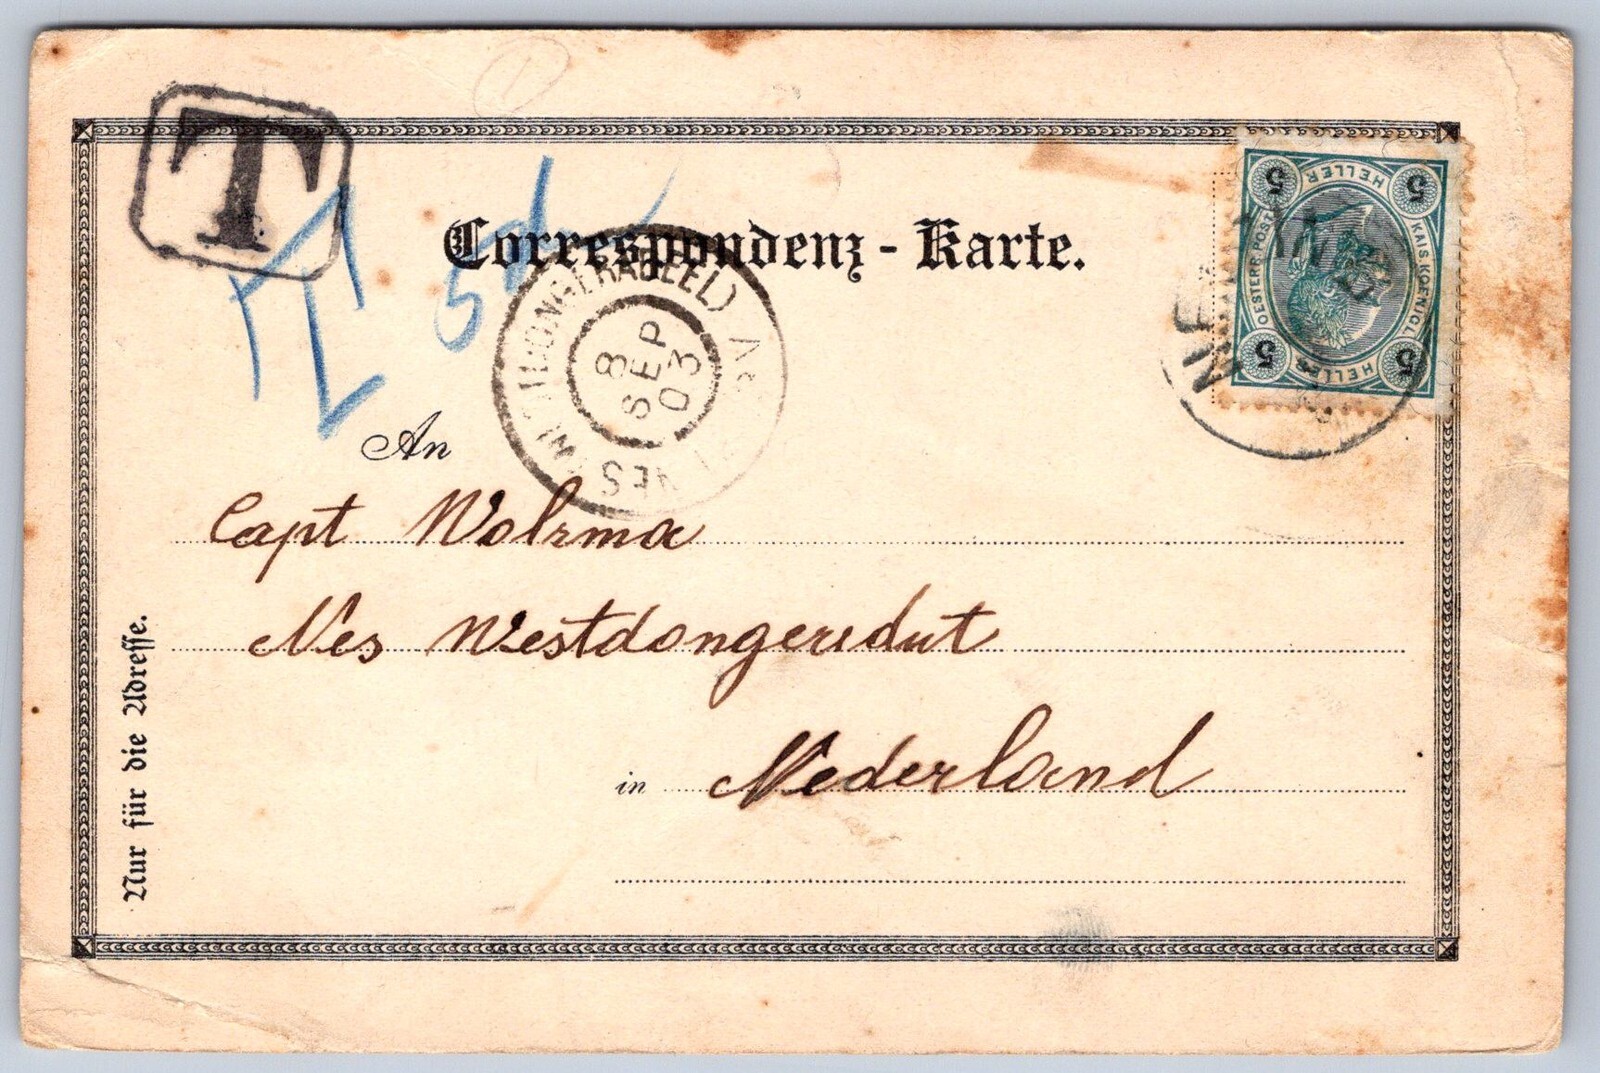 T
Correspondenz-Karte.
5
5
HELLER
OESTERR. POST
KAIS. KOENIGL.
HELLER
5
5
8
SEP
03
An
Capt Wolrma
Nes Westdongerdut
in Nederland
Nur für die Adresse.